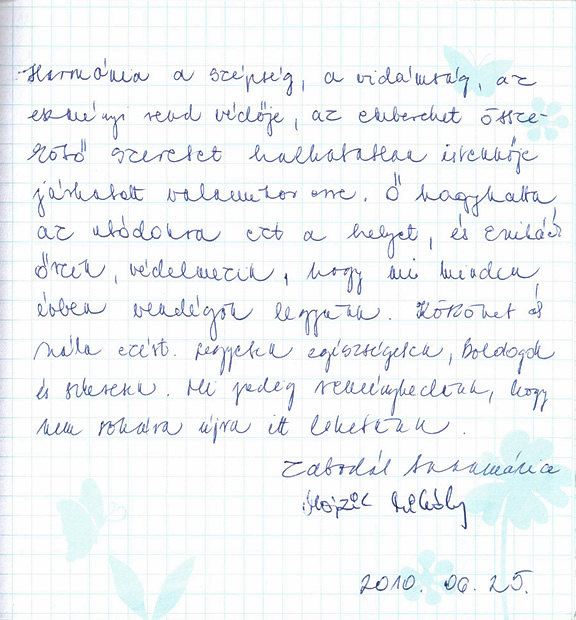 Harmónia a szépség, a vidámság, az
erkölcsi rend védője, az embereket össze-
kötő szeretet halhatatlan istennője
járhatott valamikor erre. Ő hagyhatta
az utódokra ezt a helyet, és Enikőék
őrzik, védelmezik, hogy mi minden
évben vendégek legyünk. Köszönet és
hála ezért. Legyetek egészségesek, boldogok
és sikeresek. Mi pedig reménykedünk, hogy
nem sokára újra itt lehetünk.
Zabodál Annamária
Mihály
2010. 06. 25.